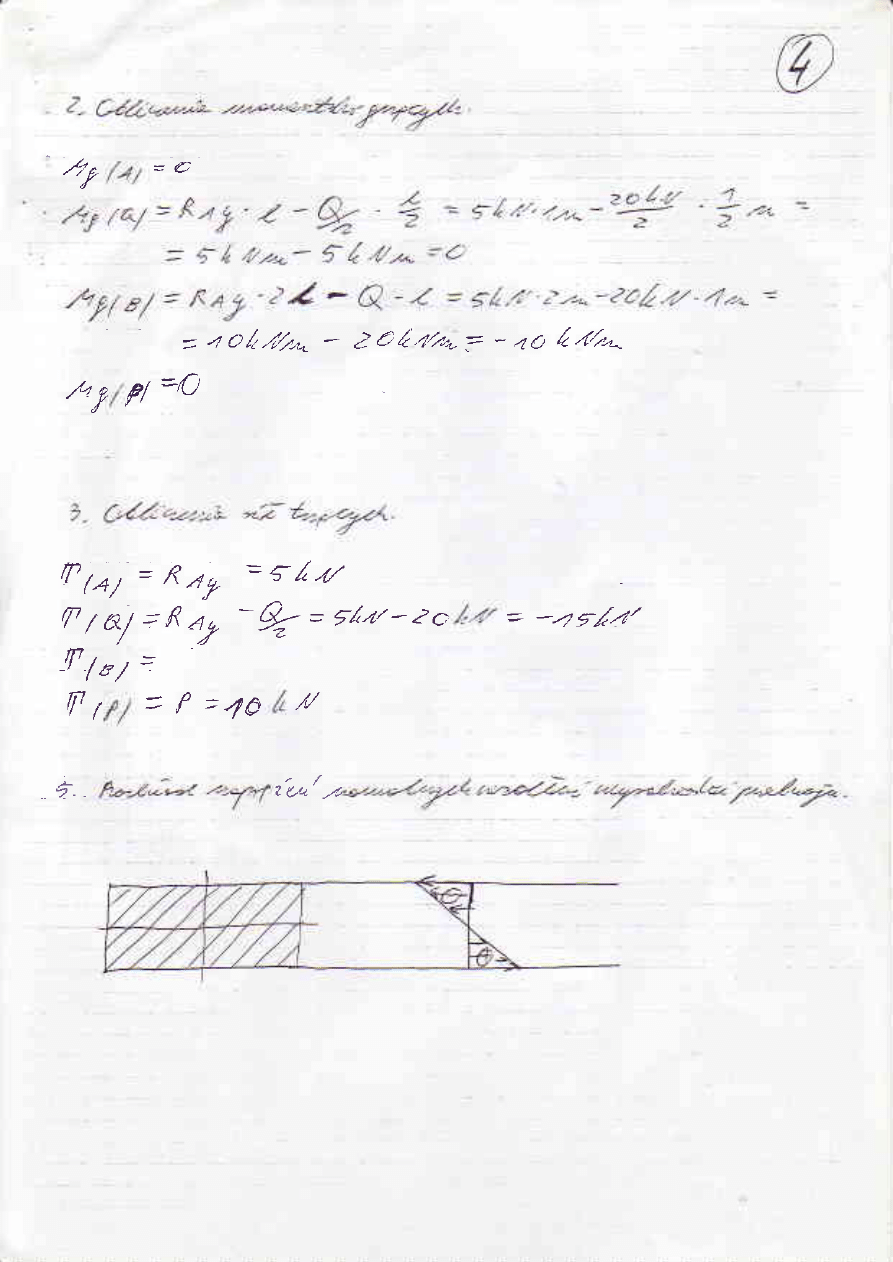 4
2. Obliczenie momentów gnących.
Mg(A) = 0
Mg(Q) = RAy · l - Q/2 · l/2 = 5kN·1m - 20kN/2 · 1/2 m =
= 5kNm - 5kNm = 0
Mg(B) = RAy · 2l - Q - l = 5kN·2m - 20kN·1m =
= 10kNm - 20kNm = -10kNm
Mg(P) = 0
3. Obliczenia sił tnących.
T(A) = RAy = 5kN
T(Q) = RAy - Q/2 = 5kN - 20kN = -15kN
T(B) =
T(P) = P = 10kN
5. Rozkład naprężeń normalnych wzdłuż wysokości przekroju.
⊖
⊕